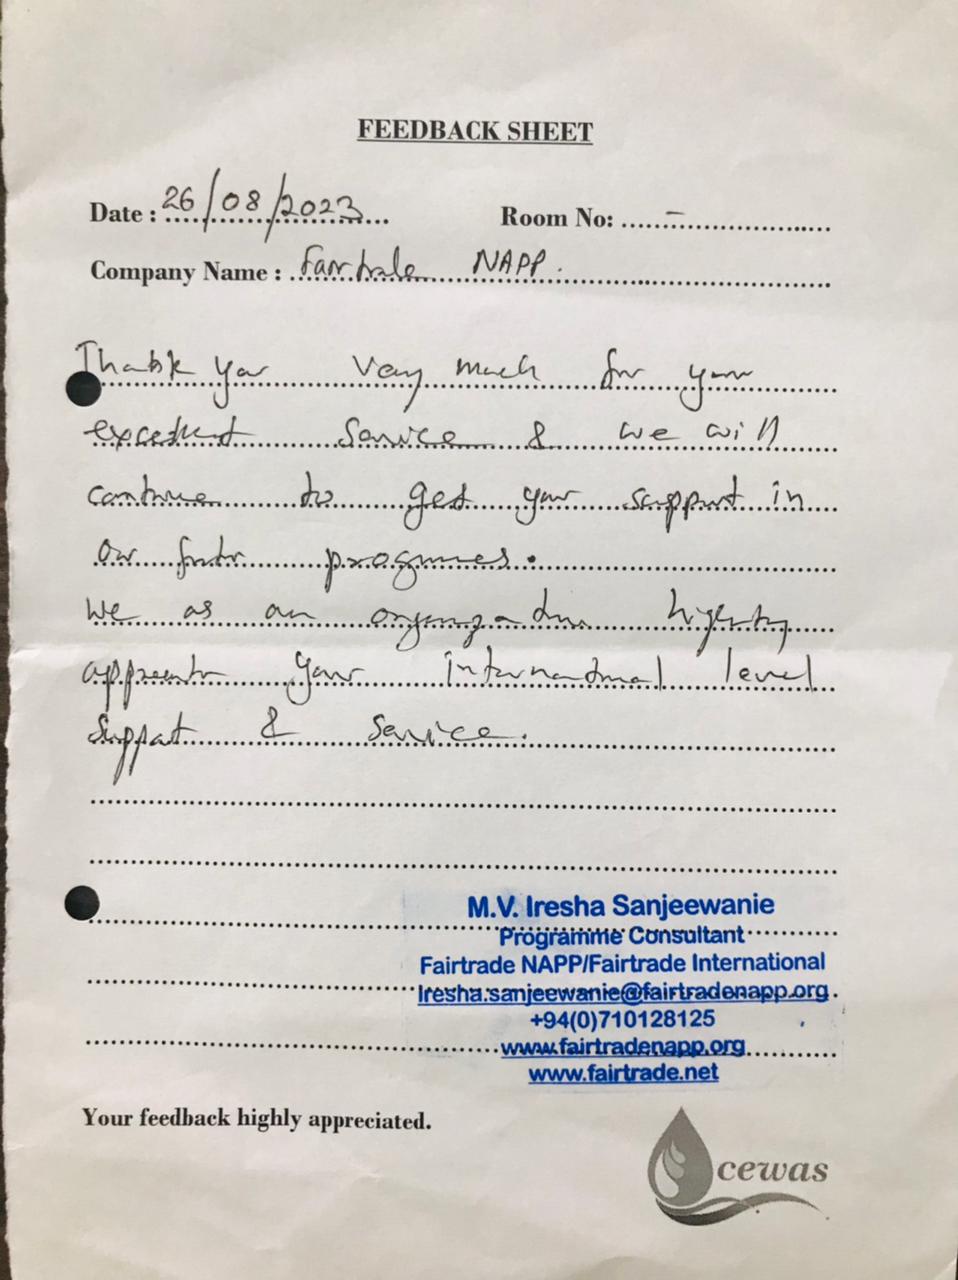 FEEDBACK SHEET
Date : 26/08/2023 Room No: -
Company Name : Fairtrade NAPP.
Thank you very much for your
excellent Service & we will
continue to get your support in
our future progmmes.
We as an organization highly
appreciate your international level
Support & Service.
M.V. Iresha Sanjeewanie
Programme Consultant
Fairtrade NAPP/Fairtrade International
Iresha.sanjeewanie@fairtradenapp.org
+94(0)710128125
www.fairtradenapp.org
www.fairtrade.net
Your feedback highly appreciated.
cewas